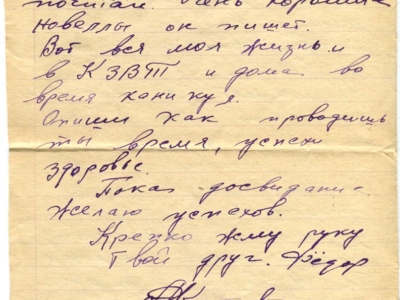 почитай. Очень хорошие
новеллы он пишет.
Вот вся моя жизнь и
в КЗВТ и дома во
время каникул.
Опиши как проводишь
ты время, успехи
здоровье.
Пока досвидани-
желаю успехов.
Крепко жму руку
Твой друг. Фёдор